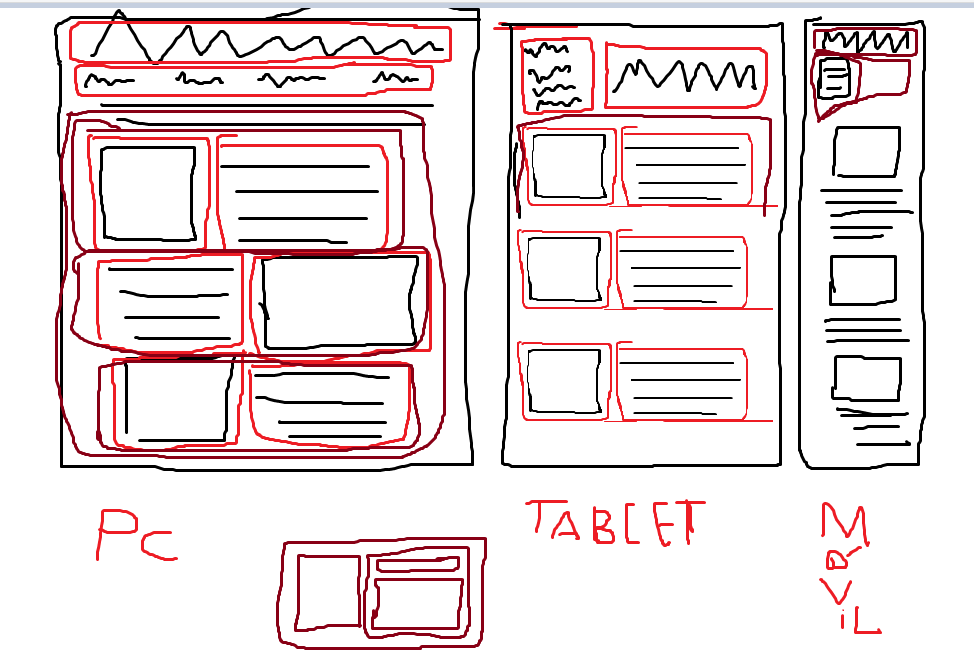 PC
TABLET
MOViL